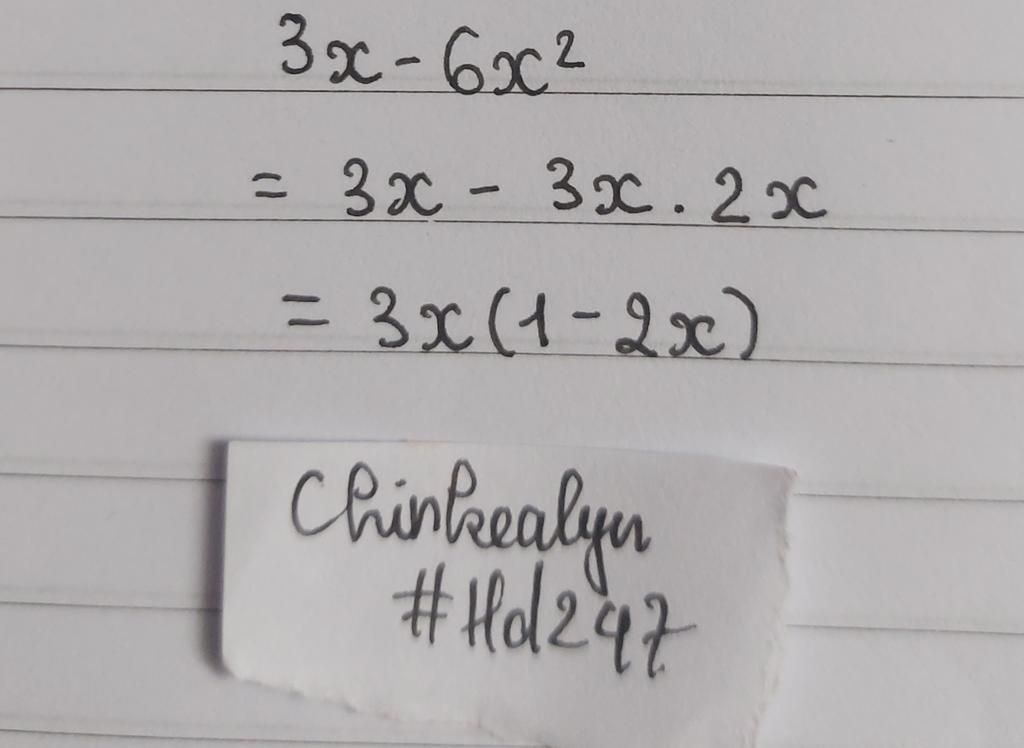 3x - 6x²
= 3x - 3x . 2x
= 3x(1 - 2x)
Chinkealyn
#Hd247